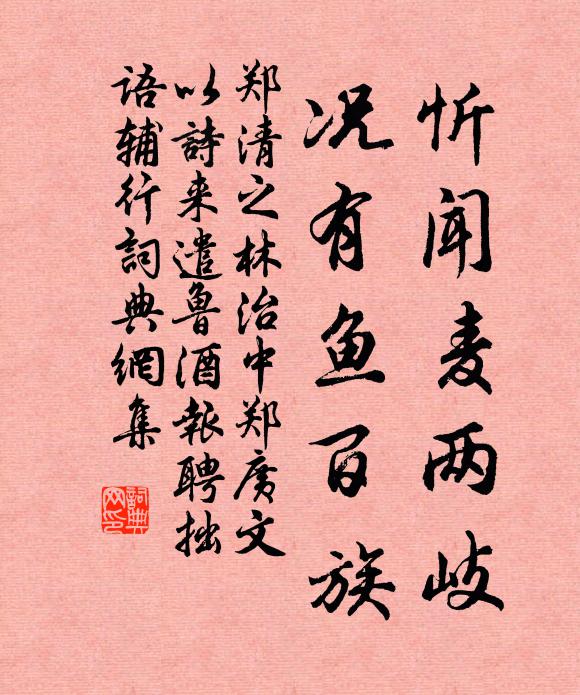 忻闻麦两岐
况有鱼百族
郑清之林治中郑广文
以詩来遣鲁酒報聘拙
语辅行詞典網集
詞典网印